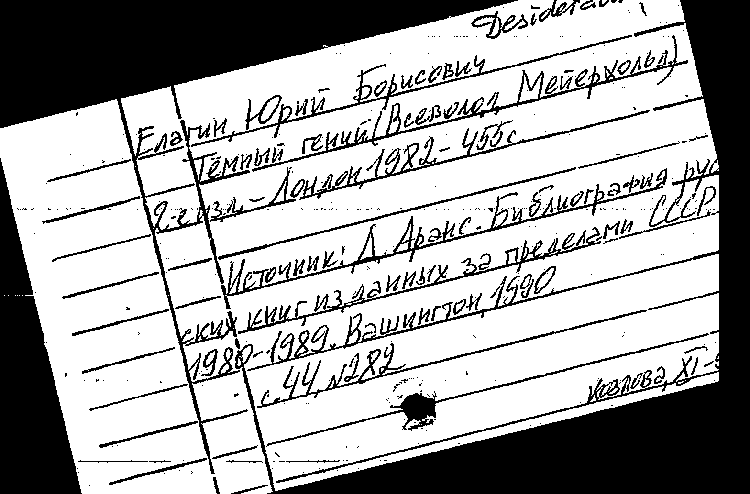 Desiderata
Елагин, Юрий Борисович
Тёмный гений (Всеволод Мейерхольд)
2-е изд. - Лондон, 1982. - 455 с.
Источник: Д. Аранс. Библиография рус
ских книг, изданных за пределами СССР.
1980-1989. Вашингтон, 1990.
с. 44, № 282
Козлова, XI-